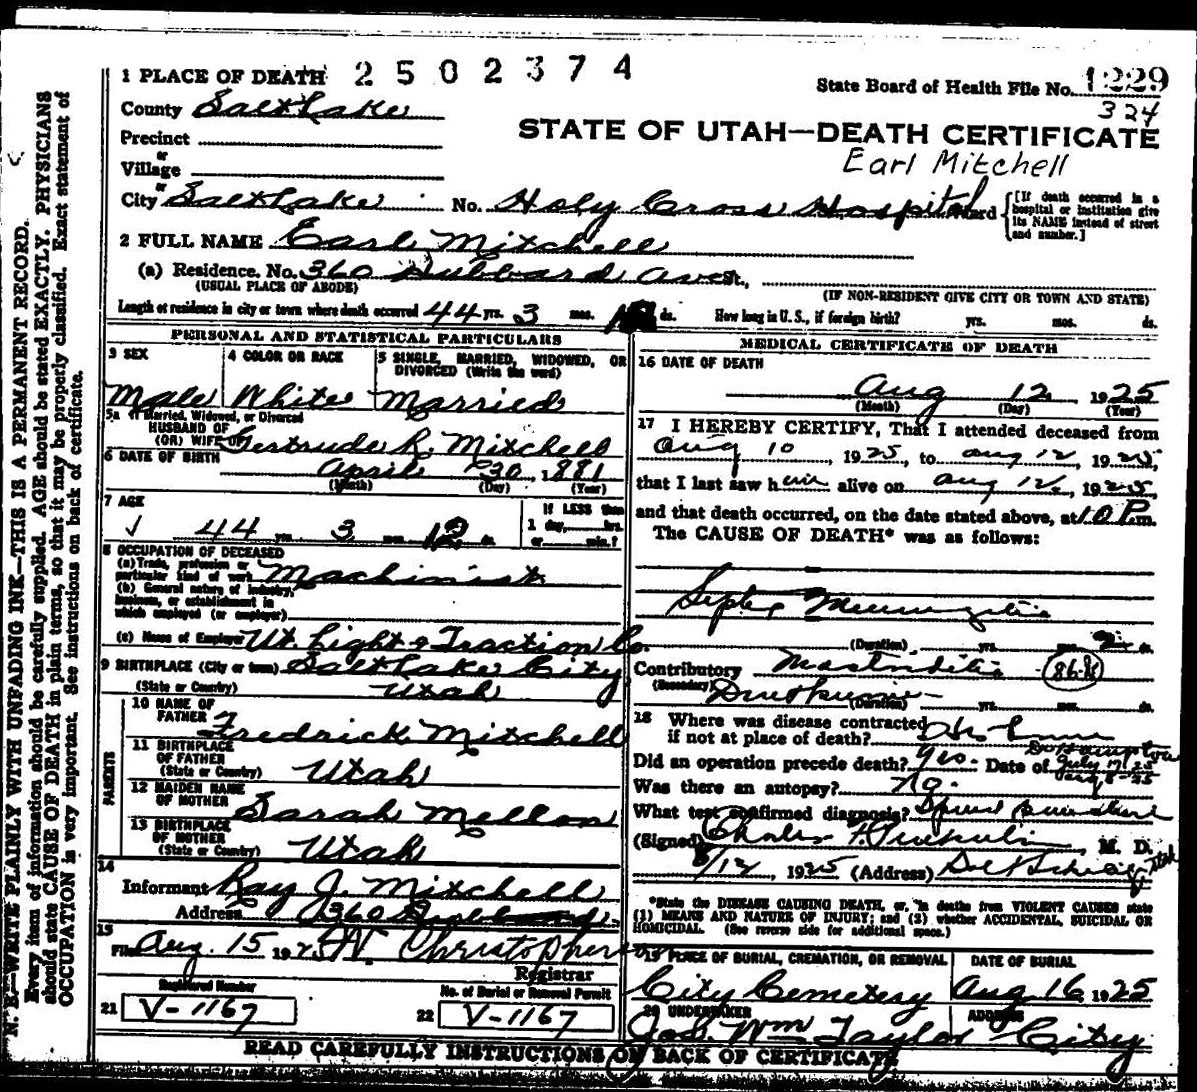 1 PLACE OF DEATH 2502374
State Board of Health File No. 1229
324
County Salt Lake
STATE OF UTAH—DEATH CERTIFICATE
Precinct
Earl Mitchell
or
Village
or
City Salt Lake No. Holy Cross Hospital Ward [If death occurred in a hospital or institution give its NAME instead of street and number.]
2 FULL NAME Earl Mitchell
(a) Residence. No. 360 Hubbard Ave St.,
(USUAL PLACE OF ABODE) (IF NON-RESIDENT GIVE CITY OR TOWN AND STATE)
Length of residence in city or town where death occurred 44 yrs. 3 mos. ds. How long in U. S., if foreign birth? yrs. mos. ds.
PERSONAL AND STATISTICAL PARTICULARS
3 SEX 4 COLOR OR RACE 5 SINGLE, MARRIED, WIDOWED, OR DIVORCED (Write the word)
Male White Married
5a If Married, Widowed, or Divorced
HUSBAND OF
(OR) WIFE OF Gertrude R. Mitchell
6 DATE OF BIRTH April 30, 1881
(Month) (Day) (Year)
7 AGE If LESS than
44 yrs. 3 mos. 12 ds. 1 day, hrs.
or min.?
8 OCCUPATION OF DECEASED
(a) Trade, profession or
particular kind of work Machinist
(b) General nature of industry,
business, or establishment in
which employed (or employer)
(c) Name of Employer Ut. Light & Traction Co.
9 BIRTHPLACE (City or town) Salt Lake City
(State or Country) Utah
PARENTS
10 NAME OF
FATHER Fredrick Mitchell
11 BIRTHPLACE
OF FATHER
(State or Country) Utah
12 MAIDEN NAME
OF MOTHER Sarah Mellon
13 BIRTHPLACE
OF MOTHER
(State or Country) Utah
14
Informant Ray J. Mitchell
Address 360 Hubbard
15
Filed Aug. 15 192 Christopherson
Registrar
Registered Number No. of Burial or Removal Permit
21 V-1167 22 V-1167
MEDICAL CERTIFICATE OF DEATH
16 DATE OF DEATH
Aug 12 1925
(Month) (Day) (Year)
17 I HEREBY CERTIFY, That I attended deceased from
Aug 10 1925, to Aug 12, 1925,
that I last saw him alive on Aug 12, 1925,
and that death occurred, on the date stated above, at 10 P.m.
The CAUSE OF DEATH* was as follows:
Septic Meningitis
(Duration) yrs. mos. ds.
Contributory Mastoiditis 86-B
(Secondary) (Duration) yrs. mos. ds.
18 Where was disease contracted
if not at place of death?
Did an operation precede death? Yes. Date of July 17/25
Aug 8-25
Was there an autopsy? No.
What test confirmed diagnosis? Spinal puncture
(Signed) Charles M. D.
8/12, 1925 (Address)
*State the DISEASE CAUSING DEATH, or, in deaths from VIOLENT CAUSES state
(1) MEANS AND NATURE OF INJURY; and (2) whether ACCIDENTAL, SUICIDAL OR
HOMICIDAL. (See reverse side for additional space.)
19 PLACE OF BURIAL, CREMATION, OR REMOVAL DATE OF BURIAL
City Cemetery Aug 16 1925
20 UNDERTAKER ADDRESS
Jos. Wm Taylor City
READ CAREFULLY INSTRUCTIONS ON BACK OF CERTIFICATE
N. B.—WRITE PLAINLY WITH UNFADING INK—THIS IS A PERMANENT RECORD.
Every item of information should be carefully supplied. AGE should be stated EXACTLY. PHYSICIANS
should state CAUSE OF DEATH in plain terms, so that it may be properly classified. Exact statement of
OCCUPATION is very important. See instructions on back of certificate.